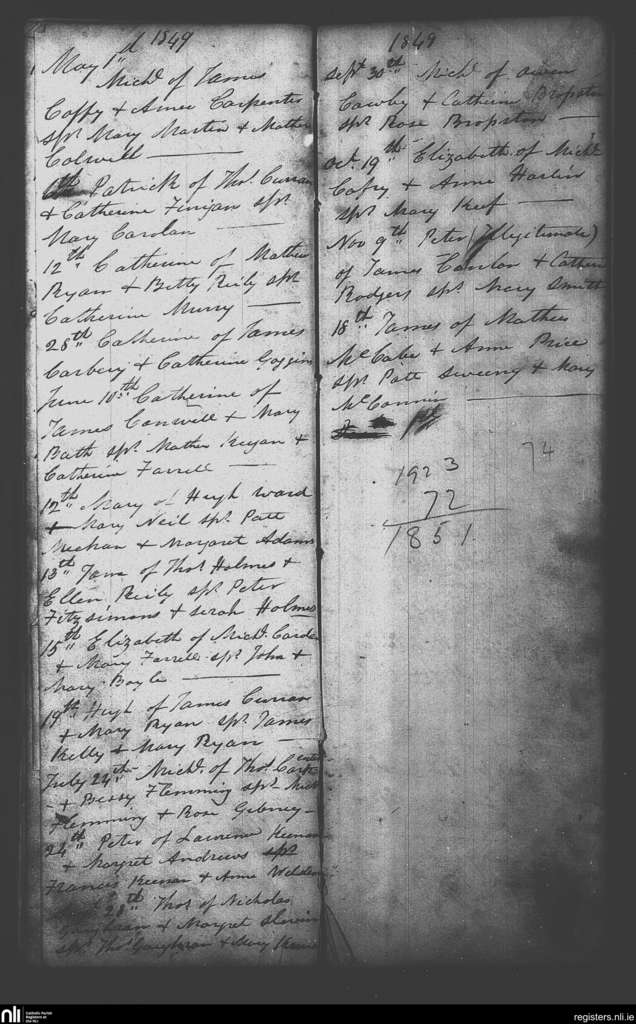 1849
May 1st
Mich.d of James
Coffy + Annee Carpenter
spr. Mary Martin + Mathew
Colwell
6th Patrick of Thos. Curran
+ Catherine Finigan spr.
Mary Carolan
12th Catherine of Mathew
Ryan + Betty Reily spr.
Catherine Murry
28th Catherine of James
Carbery + Catherine Goggins
June 10th Catherine of
James Conwell + Mary
Bath spr. Mathew Keegan +
Catherine Farrell
12th Mary of Hugh Ward
+ Mary Neil spr. Patt
Meehan + Margaret Adams
13th Jane of Thos. Holmes +
Ellen Reily spr. Peter
Fitzsimons + Serah Holmes
15th Elizabeth of Mich.d
+ Mary Farrell spr. John +
Mary Boyle
19th Hugh of James Curran
+ Mary Ryan spr. James
Kelly + Mary Ryan
July 24th Mich.d of Thos.
+ Bessy Flemming spr.
Flemming + Rose Gibney
24th Peter of Lawrence Keenan
+ Margret Andrews spr.
Francis Keenan + Anne
28th Thos. of Nicholas
Gaughran + Margret
spr. Thos. Gaughran + Mary
1849
Sept. 30th Mich.d of Owen
+ Catherine
spr. Rose
Oct. 19th Elizabeth of Mich.l
+ Anne
spr. Mary Keef
Nov 9th Peter (Illegitimate)
of James + Catherine
Rodgers spr. Mary Smith
18th James of Mathew
McCabe + Anne Price
spr. Patt Sweeny + Mary
74
1923
72
1851
nli
Catholic Parish
Registers at
the NLI
registers.nli.ie